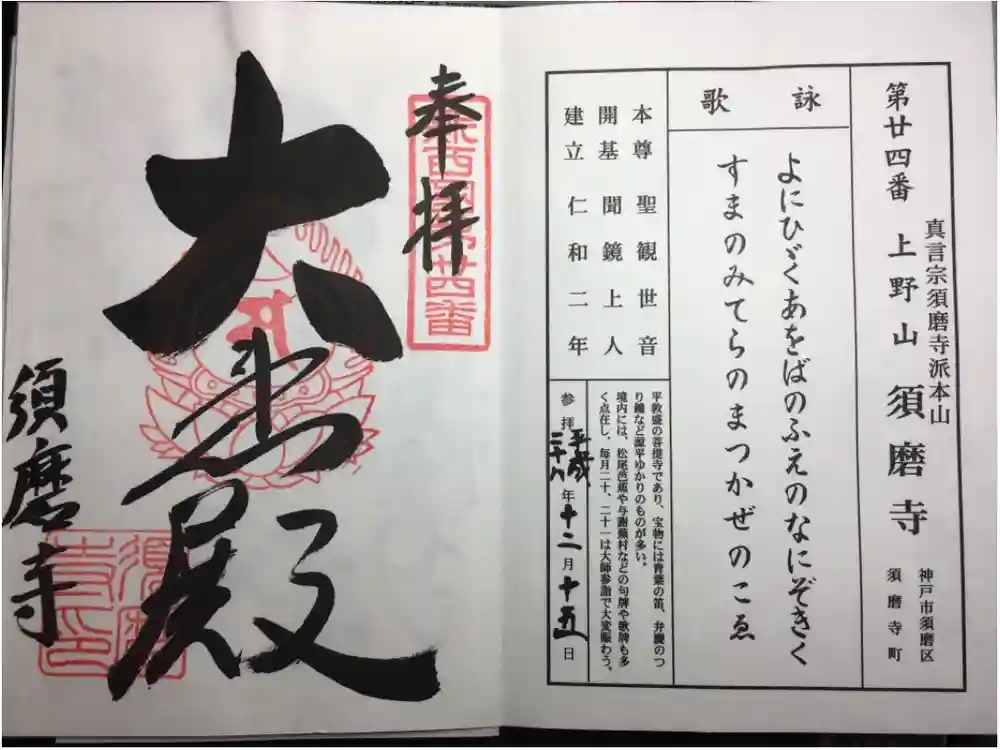 真言宗須磨寺派本山
第廿四番 上野山 須磨寺
神戸市須磨区
須磨寺町
詠歌
よにひゞくあをばのふえのなにぞきく
すまのみてらのまつかぜのこゑ
本尊 聖観世音
開基 聞鏡上人
建立 仁和二年
平敦盛の菩提寺であり、宝物には青葉の笛、弁慶のつ
り鐘など源平ゆかりのものが多い。
境内には、松尾芭蕉や与謝蕪村などの句碑や歌碑も多
く点在し、毎月二十、二十一は大師参詣で大変賑わう。
参拝 平成二十八年十二月十五日
奉拝
新西國第廿四番
大悲殿
須磨寺
須磨寺印